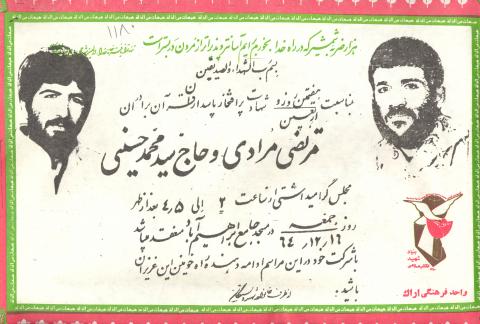 ۱۱۸۰
هزار ضربه شمشیر که در راه خدا بخورم برایم آسانتر و پذیراتر از مردن در بستر است
بسم رب الشهداء والصدیقین
بمناسبت هفتمین روز شهادت پرافتخار پاسداران قرآن برادران
مرتضی مرادی و حاج سید محمد حسینی
مجلس گرامیداشتی از ساعت ۲ الی ۴،۵ بعد از ظهر
روز جمعه ۶۴،۱۲،۱۶ در مسجد جامع ابراهیم آباد منعقد میباشد
با شرکت خود در این مراسم ادامه دهنده راه خونین این عزیزان
باشید.
بنیاد شهید انقلاب اسلامی
واحد فرهنگی اراک